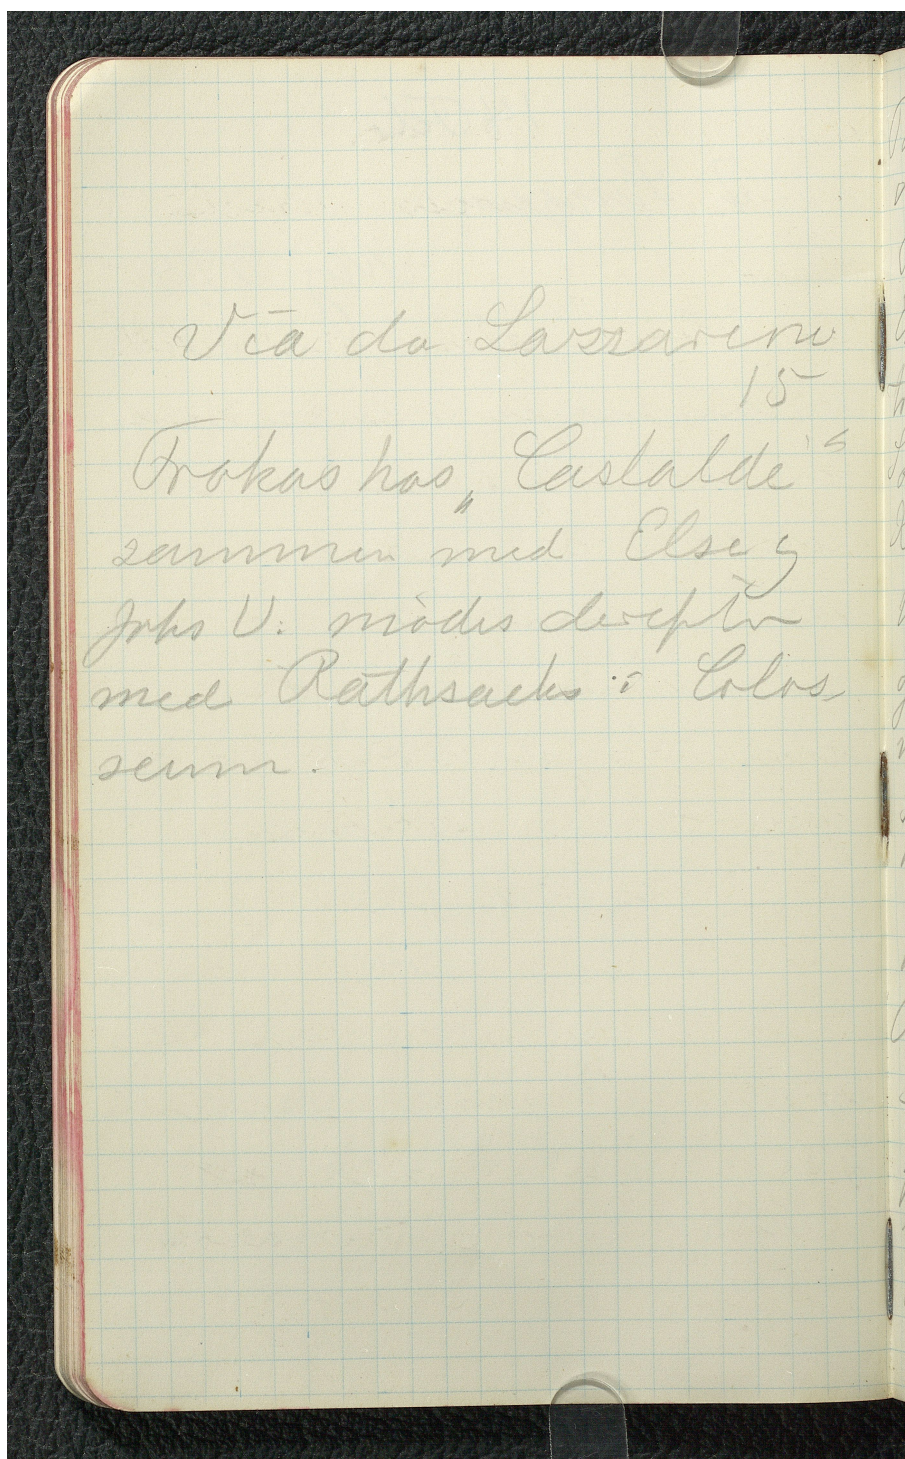 Via da Lazzarino
15
Frokas hos „Castaldi“
sammen med Else og
Johs V. mødes derefter
med Rathsacks i Colos-
seum.